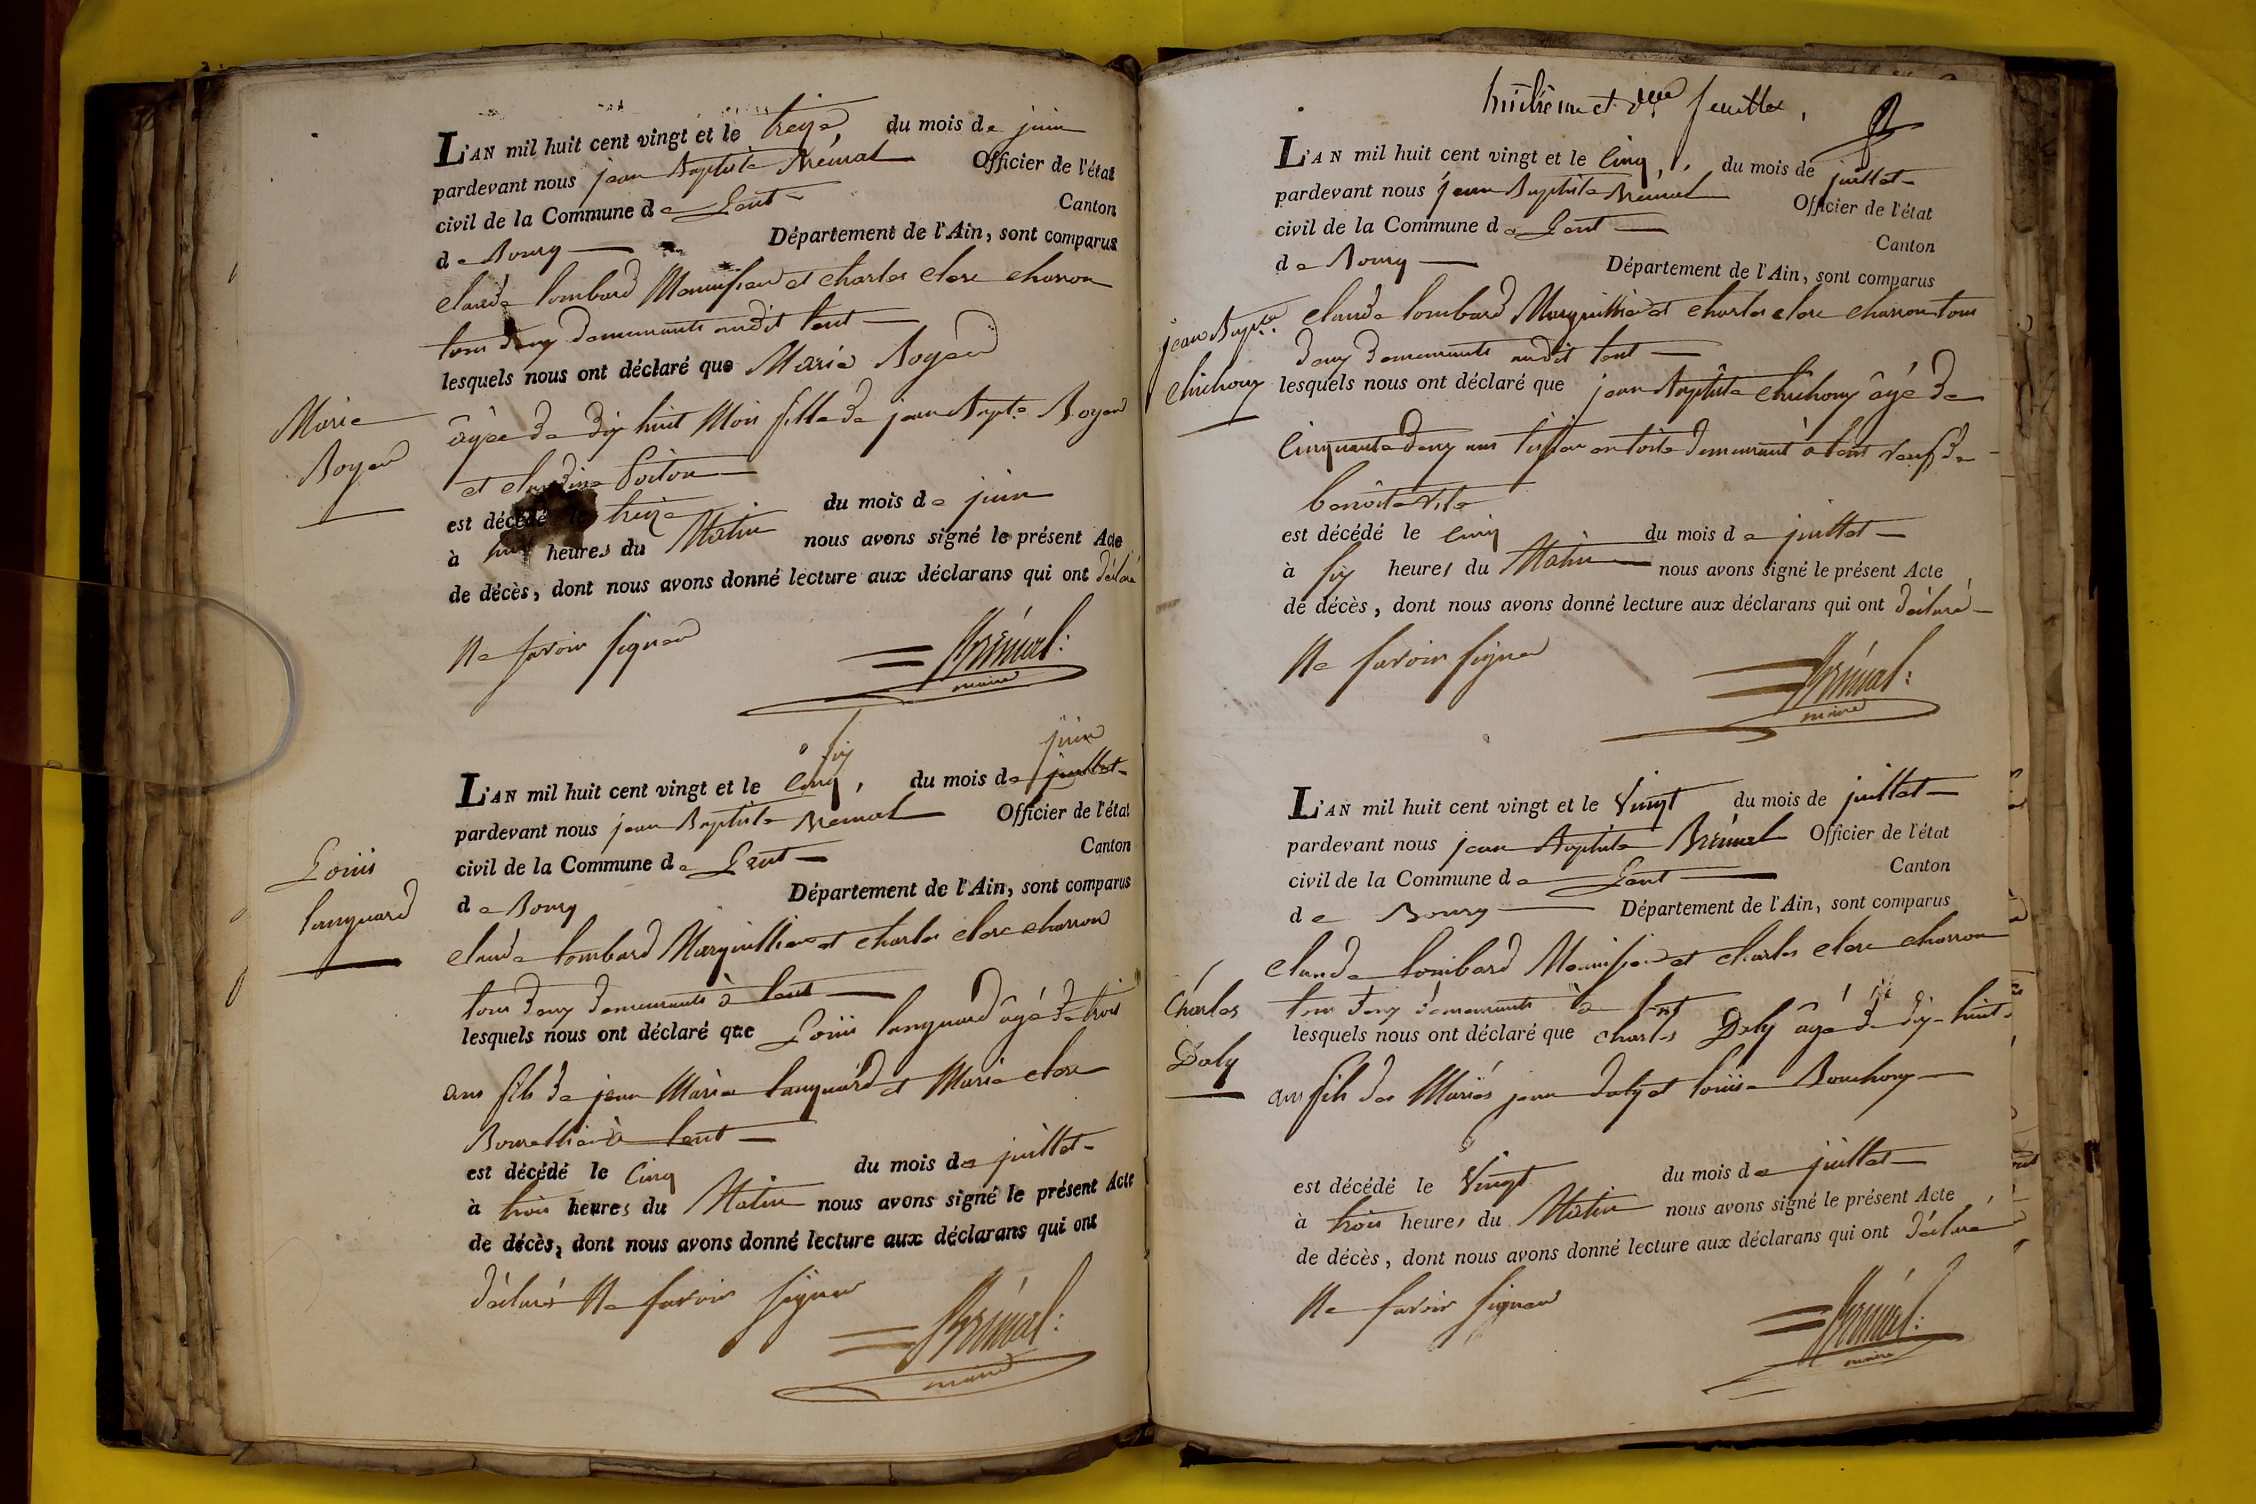 L'AN mil huit cent vingt et le treize, du mois de juin
pardevant nous jean Baptiste Brémal Officier de l'état
civil de la Commune de Lent Canton
de Bourg Département de l'Ain, sont comparus
claude lombard Menuisier et charles clerc charron
tous deux demeurants audit lent
lesquels nous ont déclaré que Marie Boyer
Marie
Boyer
âgée de dix huit Mois fille de jean Bapte Boyer
et claudine
est décédé le treize du mois de juin
à heures du Matin nous avons signé le présent Acte
de décès, dont nous avons donné lecture aux déclarans qui ont déclaré
Ne savoir signer
Brémal:
maire
six juin
L'AN mil huit cent vingt et le cinq, du mois de juillet
pardevant nous jean Baptiste Bremal Officier de l'état
civil de la Commune de Lent Canton
de Bourg Département de l'Ain, sont comparus
Louis
languard
claude lombard Marguillier et charles clerc charron
tous deux demeurants à lent
lesquels nous ont déclaré que Louis languard âgé de trois
ans fils de jean Marie languard et Marie clerc
Bourellier à lent
est décédé le cinq du mois de juillet
à trois heures du Matin nous avons signé le présent Acte
de décès, dont nous avons donné lecture aux déclarans qui ont
déclaré Ne savoir signer
Brémal:
maire
huitième et feuillet,
L'AN mil huit cent vingt et le cinq, du mois de juillet
pardevant nous jean Baptiste Brémal Officier de l'état
civil de la Commune de Lent Canton
de Bourg Département de l'Ain, sont comparus
claude lombard Marguillier et charles clerc charron tous
deux demeurants audit lent
jean Bapte
chichoux
lesquels nous ont déclaré que jean Baptiste chichoux âgé de
cinquante deux ans tissier en toile demeurant à lent veuf de
benoite
est décédé le cinq du mois de juillet
à six heures du Matin nous avons signé le présent Acte
de décès, dont nous avons donné lecture aux déclarans qui ont déclaré
Ne savoir signer
Brémal:
maire
L'AN mil huit cent vingt et le vingt du mois de juillet
pardevant nous jean Baptiste Brémal Officier de l'état
civil de la Commune de Lent Canton
de Bourg Département de l'Ain, sont comparus
claude lombard Menuisier et charles clerc charron
tous deux demeurants à lent
Charles
Daly
lesquels nous ont déclaré que charles Daly âgé de dix-huit
ans fils des Mariés jean daly et louise Bouchoux
est décédé le vingt du mois de juillet
à trois heures du Matin nous avons signé le présent Acte
de décès, dont nous avons donné lecture aux déclarans qui ont déclaré
Ne savoir signer
Brémal:
maire